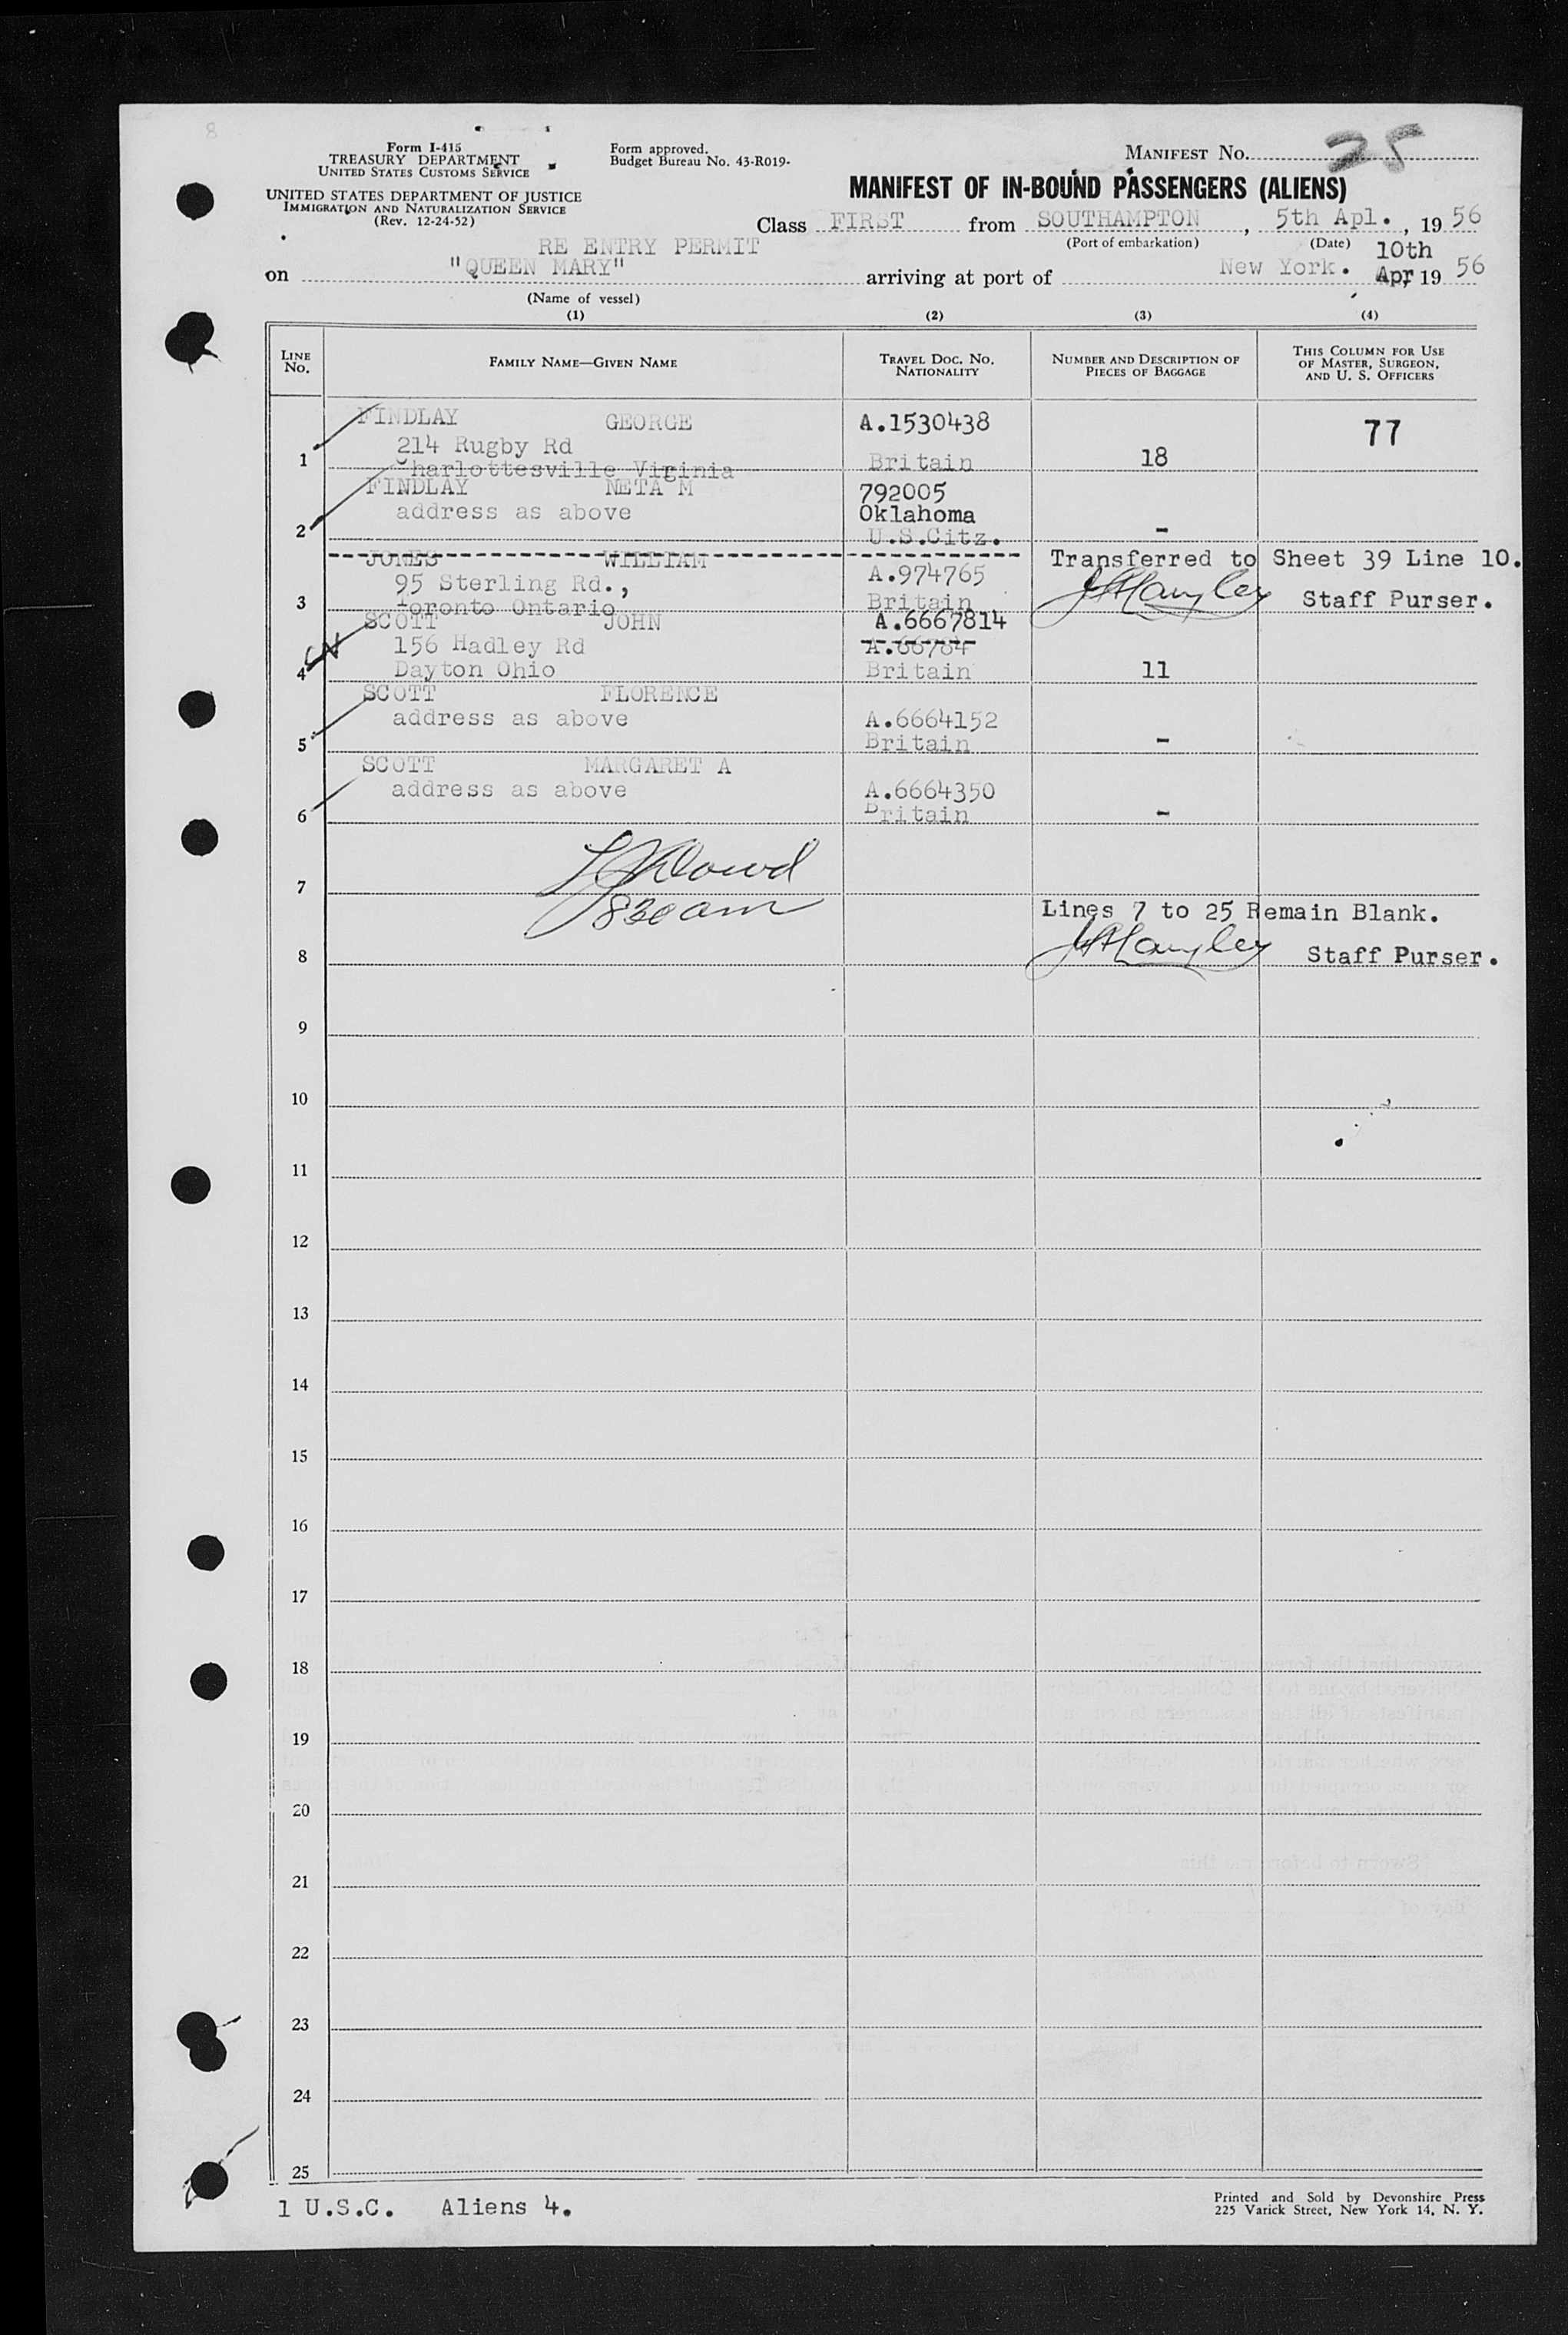 Form I-415
TREASURY DEPARTMENT
UNITED STATES CUSTOMS SERVICE
UNITED STATES DEPARTMENT OF JUSTICE
IMMIGRATION AND NATURALIZATION SERVICE
(Rev. 12-24-52)
Form approved.
Budget Bureau No. 43-R019-
MANIFEST NO. 25
MANIFEST OF IN-BOUND PASSENGERS (ALIENS)
Class FIRST from SOUTHAMPTON, 5th Apl., 19 56
(Port of embarkation) (Date)
RE ENTRY PERMIT
on "QUEEN MARY" arriving at port of New York. 10th Apr, 19 56
(Name of vessel)
(1) (2) (3) (4)
LINE NO.
FAMILY NAME—GIVEN NAME
TRAVEL DOC. NO. NATIONALITY
NUMBER AND DESCRIPTION OF PIECES OF BAGGAGE
THIS COLUMN FOR USE OF MASTER, SURGEON, AND U. S. OFFICERS
FINDLAY GEORGE A.1530438 77
214 Rugby Rd
1 Charlottesville Virginia Britain 18
FINDLAY NETA M 792005
address as above Oklahoma
2 U.S.Citz. -
JONES WILLIAM Transferred to Sheet 39 Line 10.
95 Sterling Rd., A.974765
3 Toronto Ontario Britain Staff Purser.
SCOTT JOHN A.6667814
156 Hadley Rd A.66784
4 Dayton Ohio Britain 11
SCOTT FLORENCE
address as above A.6664152
5 Britain -
SCOTT MARGARET A
address as above A.6664350
6 Britain -
7
830 am
Lines 7 to 25 Remain Blank.
8 Staff Purser.
9
10
11
12
13
14
15
16
17
18
19
20
21
22
23
24
25
1 U.S.C. Aliens 4.
Printed and Sold by Devonshire Press
225 Varick Street, New York 14, N. Y.